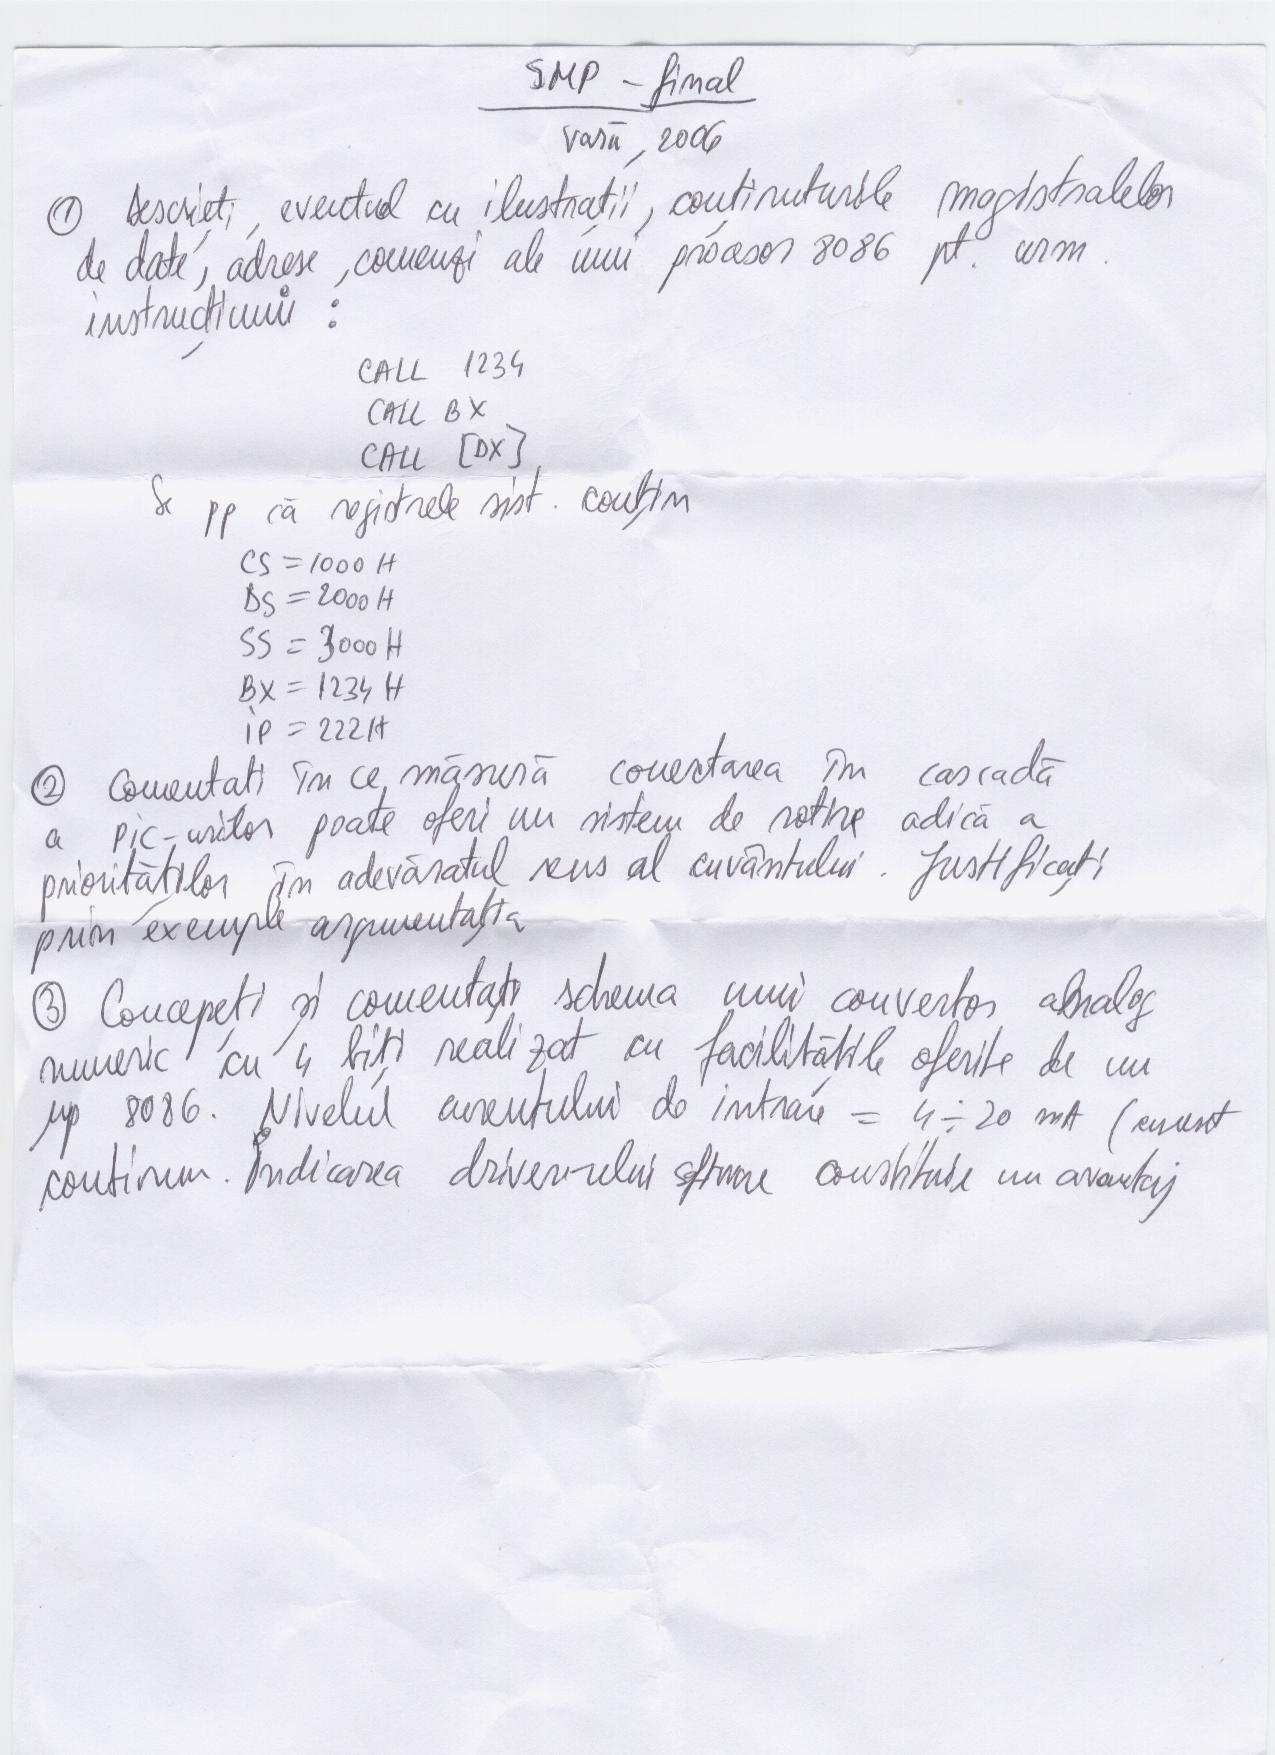 SMP - final
Vară, 2006
① Descrieți, eventual cu ilustrații, conținuturile magistralelor
de date, adrese, comenzi ale unui procesor 8086 pt. urm.
instrucțiuni :
CALL 1234
CALL BX
CALL [DX]
Se pp că registrele sist. conțin
CS = 1000 H
DS = 2000 H
SS = 3000 H
BX = 1234 H
IP = 222 H
② Comentati în ce măsură conectarea în cascadă
a PIC-urilor poate oferi un sistem de rotire adică a
priorităților în adevăratul sens al cuvântului. Justificați
prin exemple argumentația
③ Concepeți și comentați schema unui convertor analog
numeric cu 4 biți realizat cu facilitățile oferite de un
μp 8086. Nivelul curentului de intrare = 4 ÷ 20 mA (curent
continuu. Indicarea driver-ului constituie un avantaj